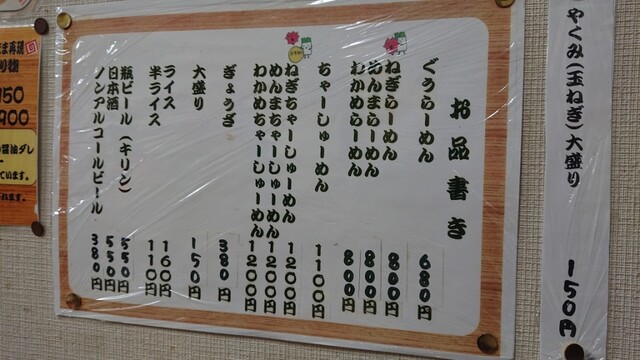 やくみ(玉ねぎ)大盛り 150円
お品書き
ぐうらーめん 680円
ねぎらーめん 800円
めんまらーめん 800円
わかめらーめん 800円
ちゃーしゅーめん 1100円
ねぎちゃーしゅーめん 1200円
めんまちゃーしゅーめん 1200円
わかめちゃーしゅーめん 1200円
ぎょうざ 380円
大盛り 150円
ライス 160円
半ライス 110円
瓶ビール(キリン) 550円
日本酒 550円
ノンアルコールビール 380円